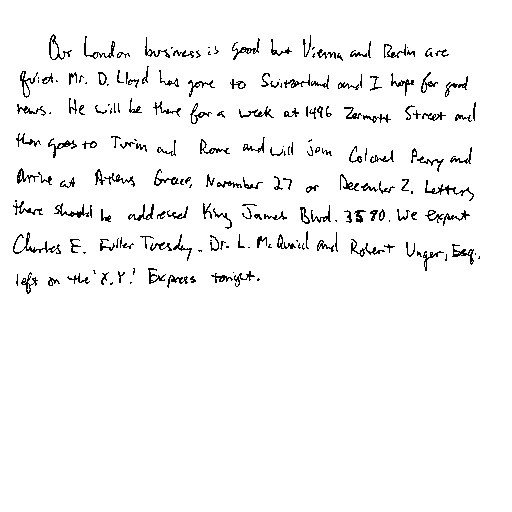 Our London business is good but Vienna and Berlin are
quiet. Mr. D. Lloyd has gone to Switzerland and I hope for good
news. He will be there for a week at 1496 Zermott Street and
then goes to Turin and Rome and will join Colonel Perry and
arrive at Athens Greece, November 27 or December 2. Letters
there should be addressed King James Blvd. 3580. We expect
Charles E. Fuller Tuesday. Dr. L. McQuaid and Robert Unger, Esq.,
left on the 'X.Y.' Express tonight.